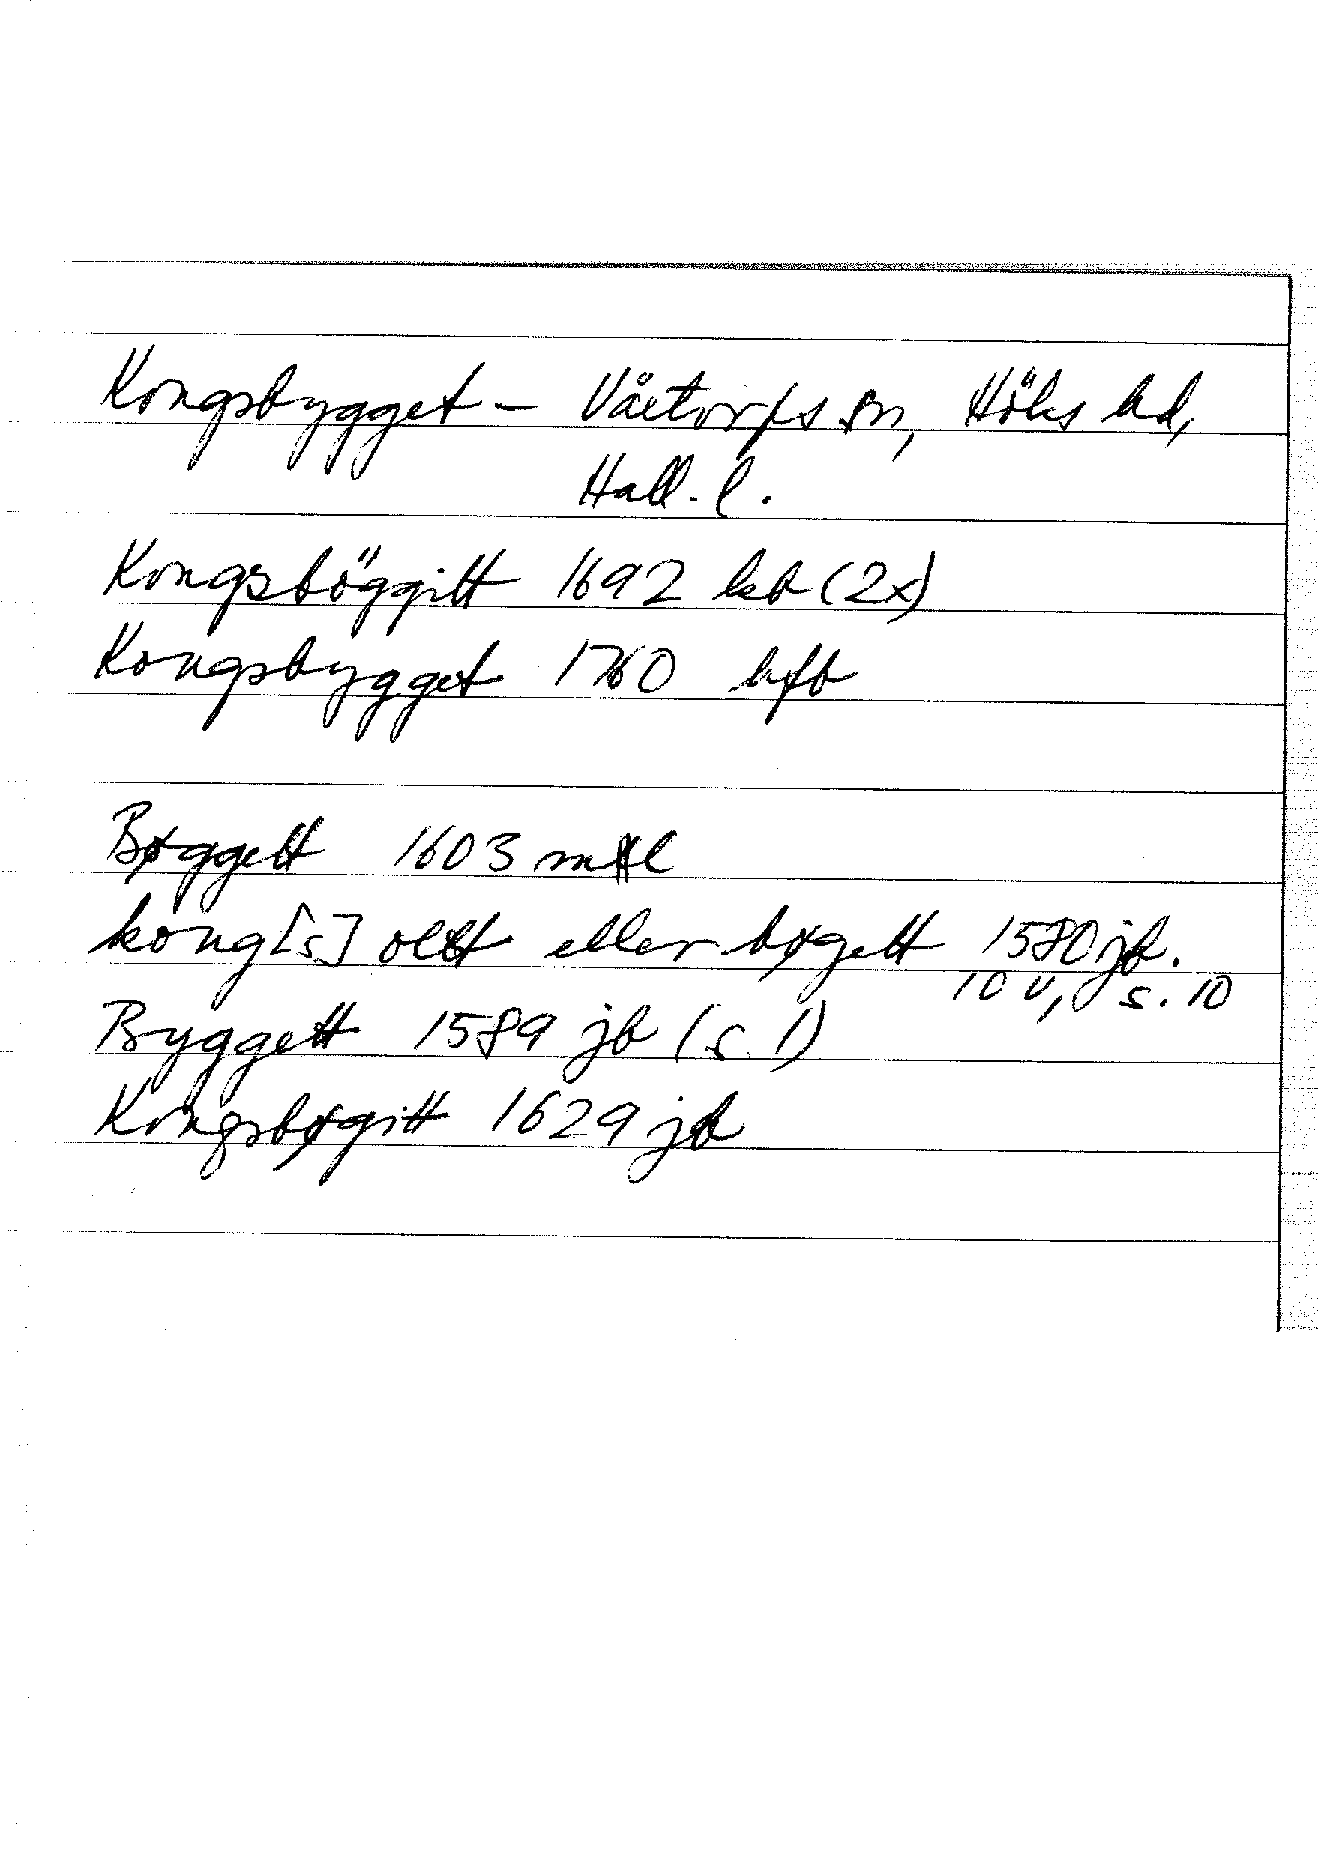 Kongsbygget – Våxtorps sn, Höks hd,
Hall. l.
Kongsböggitt 1692 lsb (2x)
Kongsbygget 1760 hfb
Bøggett 1603 mtl
kong[s] ollt eller bøgett 1580 jb.
10 v, s. 10
Byggett 1589 jb (s. 1)
Kongsbøgitt 1629 jb